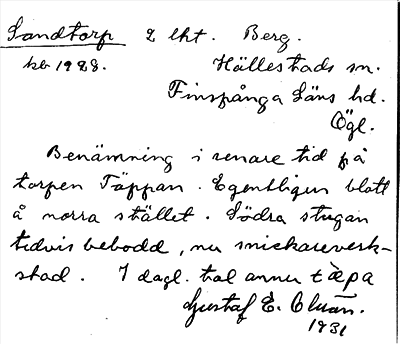 Sandtorp 2 lht. Berg.
kb 1928. Hällestads sn.
Finspånga Läns hd.
Ögl.
Benämning i senare tid på
torpen Täppan. Egentligen blott
å norra stället. Södra stugan
tidvis bebodd, nu snickareverk-
stad. I dagl. tal annu tæpa
Gustaf E.
1931